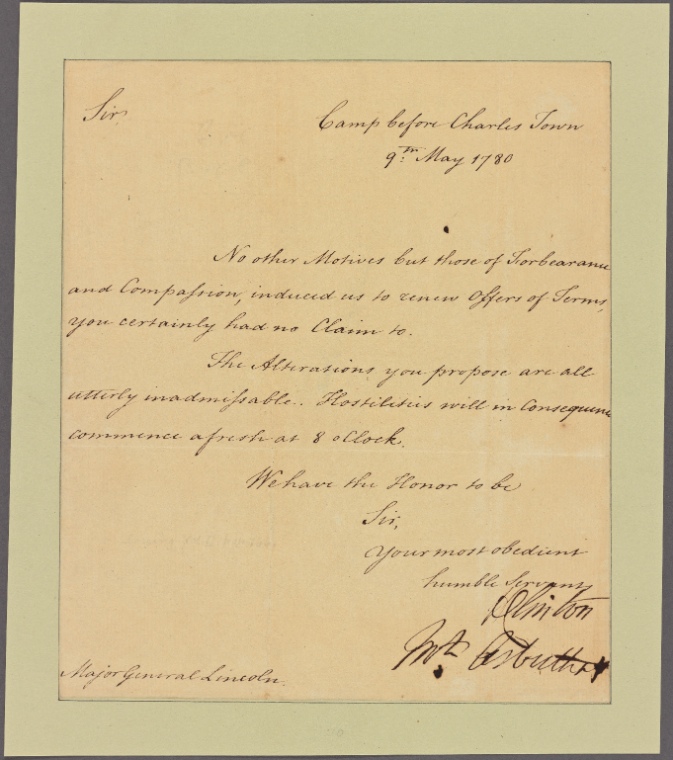 Sir
Camp before Charles Town
9.th May 1780
No other Motives but those of Forbearance
and Compassion, induced us to renew Offers of Terms,
you certainly had no Claim to.
The Alterations you propose are all
utterly inadmissable. Hostilities will in Consequence
commence afresh at 8 oClock.
We have the Honor to be
Sir,
Your most obedient
humble Servants
HClinton
Mt Arbuthnot
Major General Lincoln.